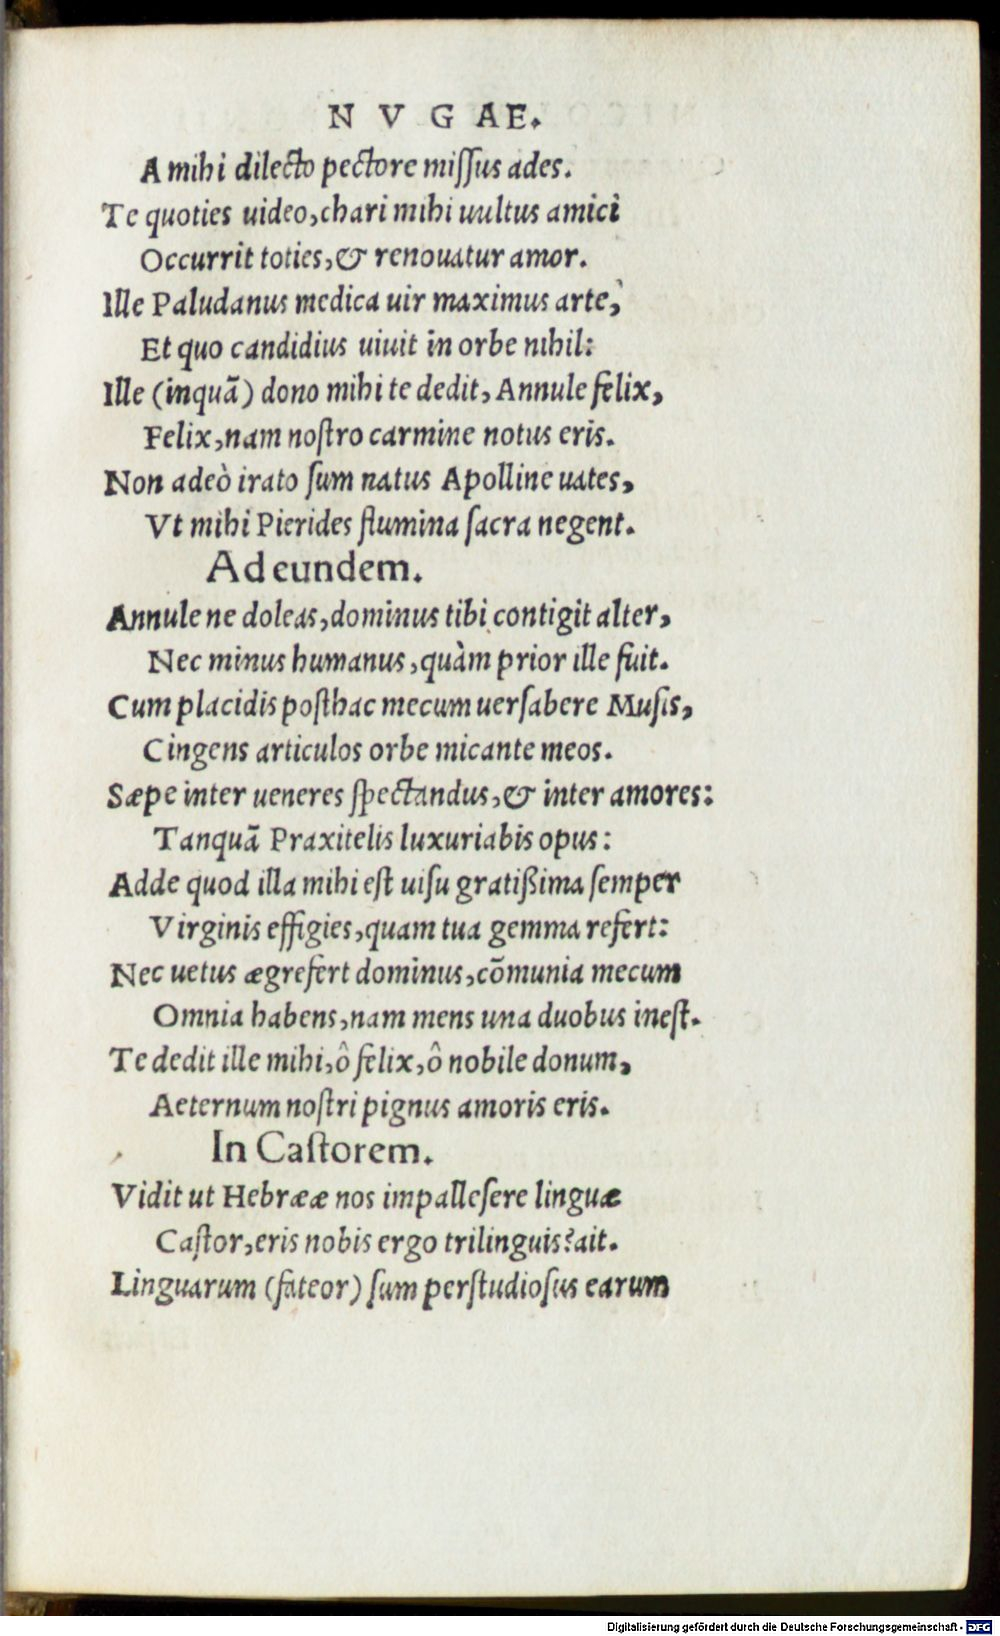 N V G AE.
A mihi dilecto pectore miſſus ades.
Te quoties uideo, chari mihi uultus amici
Occurrit toties, & renouatur amor.
Ille Paludanus medica uir maximus arte,
Et quo candidius uiuit in orbe nihil:
Ille (inquã) dono mihi te dedit, Annule felix,
Felix, nam noſtro carmine notus eris.
Non adeò irato ſum natus Apolline uates,
Vt mihi Pierides flumina ſacra negent.
Ad eundem.
Annule ne doleas, dominus tibi contigit alter,
Nec minus humanus, quàm prior ille fuit.
Cum placidis poſthac mecum uerſabere Muſis,
Cingens articulos orbe micante meos.
Sæpe inter ueneres ſpectandus, & inter amores:
Tanquã Praxitelis luxuriabis opus:
Adde quod illa mihi eſt uiſu gratißima ſemper
Virginis effigies, quam tua gemma refert:
Nec uetus ægrefert dominus, cõmunia mecum
Omnia habens, nam mens una duobus ineſt.
Te dedit ille mihi, ô felix, ô nobile donum,
Aeternum noſtri pignus amoris eris.
In Caſtorem.
Vidit ut Hebrææ nos impalleſere linguæ
Caſtor, eris nobis ergo trilinguis? ait.
Linguarum (fateor) ſum perſtudioſus earum
Digitalisierung gefördert durch die Deutsche Forschungsgemeinschaft - DFG